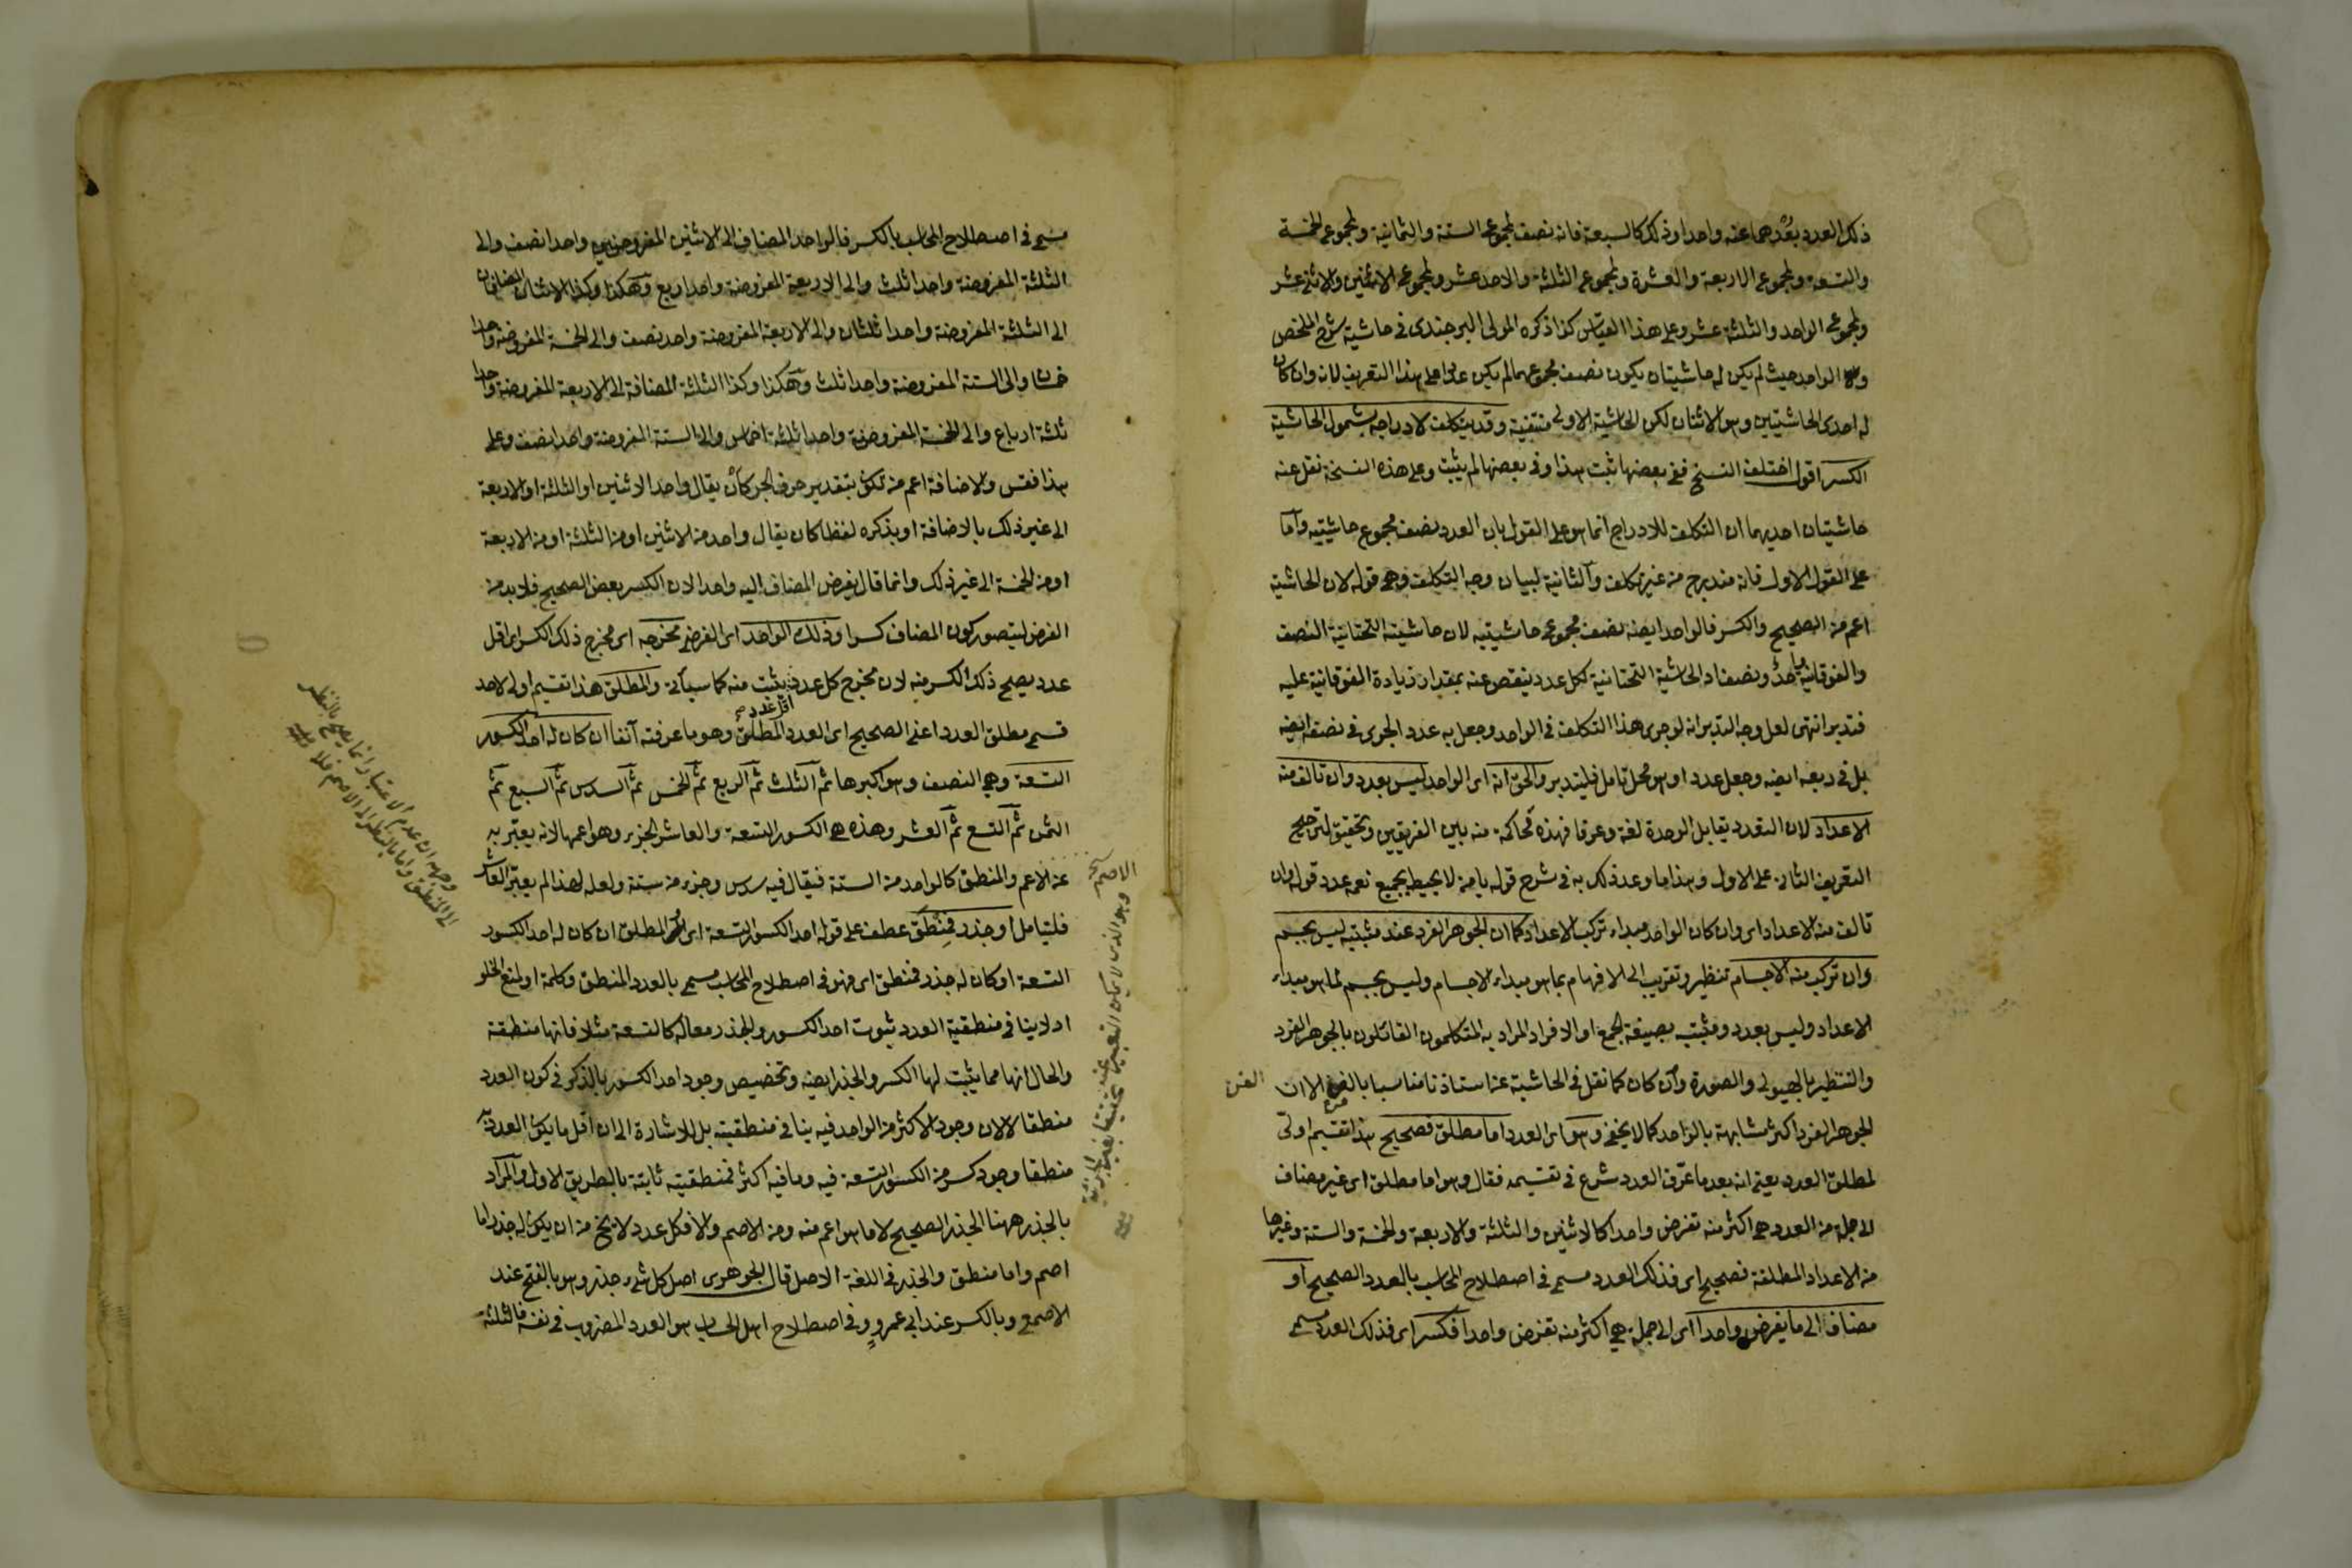 ذلك العدد بعدهما عنه واحدا وذلك كالسبعة فانه نصف لمجموع الستة والثمانية ولمجموع الخمسة
والتسعة ولمجموع الاربعة والعشرة ولمجموع الثلثة والاحد عشر ولمجموع الاثنين والاثنى عشر
ولمجموع الواحد والثلثة عشر وعلى هذا القياس كذا ذكره المولى البرجندى فى حاشية شرح الملخص
الواحد حيث لم يكن له حاشيتان يكون نصف مجموعهما لم يكن عددا على هذا التعريف لانه وان كان
له احدى الحاشيتين وهو الاثنان لكن الحاشية الاولى منتفية وقد يتكلف لادراجه بشمول الحاشية
الكسر اقول اختلف النسخ ففى بعضها ثبت هذا وفى بعضها لم يثبت وعلى هذه النسخة نقل عنه
حاشيتان احديهما ان التكلف للادراج انما هو على القول بان العدد نصف مجموع حاشيتيه واما
على القول الاول فانه مندرج من غير تكلف والثانية لبيان وجه التكلف وهى قوله لان الحاشية
اعم من الصحيح والكسر فالواحد ايضه نصف مجموع حاشيتيه لان حاشيته التحتانية النصف
والفوقانية واحد ونصف اذ الحاشية التحتانية لكل عدد ينقص عنه بمقدار زيادة الفوقانية عليه
فتدبر انتهى لعل وجه التدبر انه لو جرى هذا التكلف فى الواحد وجعل به عدد الجرى فى نصفه ايضه
بل فى ربعه ايضه وجعل عددا وهو محل تامل فليتدبر والحق انه اى الواحد ليس بعدد وان تالف منه
الاعداد لان التعدد يقابل الوحدة لغة وعرفا فهذه محاكمة منه بين الفريقين وتحقيق لترجيح
التعريف الثانى على الاول وهذا ما وعد ذلك به فى شرح قوله يا من لا يحيط بجميع نعمه عدد قوله وان
تالف منه الاعداد اى وان كان الواحد مبداء تركب الاعداد كما ان الجوهر الفرد عند مثبتيه ليس بجسم
وان تركب منه الاجسام تنظير وتقريب الى الافهام بما هو مبداء الاجسام وليس بجسم لما هو مبداء
الاعداد وليس بعدد ومثبتيه بصيغة الجمع او الافراد المراد به المتكلمون القائلون بالجوهر الفرد
والتنظير بالهيولى والصورة وان كان كما نقل فى الحاشية عن استاذنا مناسبا بالفن الا ان
الفن
الجوهر الفرد اكثر مشابهة بالواحد كما لا يخفى وهو اى العدد اما مطلق فصحيح هذا تقسيم اولى
لمطلق العدد يعنى انه بعد ما عرف العدد شرع فى تقسيمه فقال وهو اما مطلق اى غير مضاف
الى جملة من العدد هى اكثر منه تفرض واحدا كالاثنين والثلثة والاربعة والخمسة والستة وغيرها
من الاعداد المطلقة فصحيح اى فذلك العدد مسمى فى اصطلاح المحاسب بالعدد الصحيح او
مضاف الى ما يفرض واحدا اى الى جملة هى اكثر منه تفرض واحدا فكسر اى فذلك العدد مسمى
مسمى فى اصطلاح المحاسب بالكسر فالواحد المضاف الى الاثنين المفروضين واحدا نصف والى
الثلثة المفروضة واحدا ثلث والى الاربعة المفروضة واحدا ربع وهكذا وكذا الاثنان المضافان
الى الثلثة المفروضة واحدا ثلثان والى الاربعة المفروضة واحد نصف والى الخمسة المفروضة واحدا
خمسان والى الستة المفروضة واحدا ثلث وهكذا وكذا الثلثة المضافة الى الاربعة المفروضة واحدا
ثلثة ارباع والى الخمسة المفروضة واحدا ثلثة اخماس والى الستة المفروضة واحدا نصف وعلى
هذا فقس والاضافة اعم من بتقدير حرف الجر كأن يقال واحد الاثنين او الثلثة او الاربعة
الى غير ذلك بالاضافة او بذكره لفظا كان يقال واحد من الاثنين او من الثلثة او من الاربعة
او من الخمسة الى غير ذلك وانما قال يفرض المضاف اليه واحدا لان الكسر بعض الصحيح فلا بد من
الفرض ليتصور كون المضاف كسرا وذلك الواحد اى الفرضى مخرجه اى مخرج ذلك الكسر اى اقل
عدد يصح ذلك الكسر منه لان مخرج كل عدد يثبت منه كما سيأتى والمطلق هذا تقسيم اولى لاحد
اقل عدد صح
قسمى مطلق العدد اعنى الصحيح اى العدد المطلق وهو ما عرفته آنفا ان كان له احد الكسور
التسعة وهى النصف وهو اكبرها ثم الثلث ثم الربع ثم الخمس ثم السدس ثم السبع ثم
الثمن ثم التسع ثم العشر وهذه هى الكسور التسعة والعاشر الجزء وهو اعمها لانه يعبر به
عن الاعم والمنطق كالواحد من الستة فيقال فيه سدس وجزء من ستة ولعله لهذا لم يعتبر العاشر
فليتامل او جذر فمنطق عطف على قوله احد الكسور التسعة اى المطلق ان كان له احد الكسور
التسعة او كان له جذر فمنطق اى فهو فى اصطلاح المحاسب مسمى بالعدد المنطق وكلمة او لمنع الخلو
اذ لا ينافى منطقية العدد ثبوت احد الكسور والجذر معا له كالتسعة مثلا فانها منطقة
والحال انها مما يثبت لها الكسر والجذر ايضه وتخصيص وجود احد الكسور بالذكر فى كون العدد
منطقا لا لان وجود الاكثر من الواحد فيه ينافى منطقيته بل للاشارة الى ان اقل ما يكون العدد به
منطقا وجود كسر من الكسور التسعة فيه وما فيه اكثر فمنطقيته ثابتة بالطريق الاولى والمراد
بالجذر ههنا الجذر الصحيح لا ما هو اعم منه ومن الاصم والا فكل عدد لا يخ من ان يكون له جذر اما
اصم واما منطق والجذر فى اللغة الاصل قال الجوهرى اصل كل شئ جذره وهو بالفتح عند
الاصمعى وبالكسر عند ابى عمرو وفى اصطلاح اهل الحساب هو العدد المضروب فى نفسه فالثلثة
الاصم
وهو الذى لا يمكن التعبير عنه
وجهه ان عدم الاعتبار انما يصح بالنظر
الى المنطق واما بالنظر الى الاصم فلا